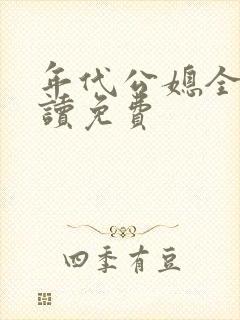 年代公媳全
讀免費
四季有豆